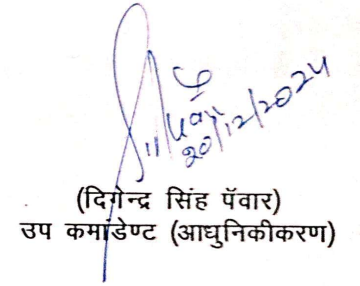 20/12/2024
(दिगेन्द्र सिंह पॅवार)
उप कमांडेण्ट (आधुनिकीकरण)